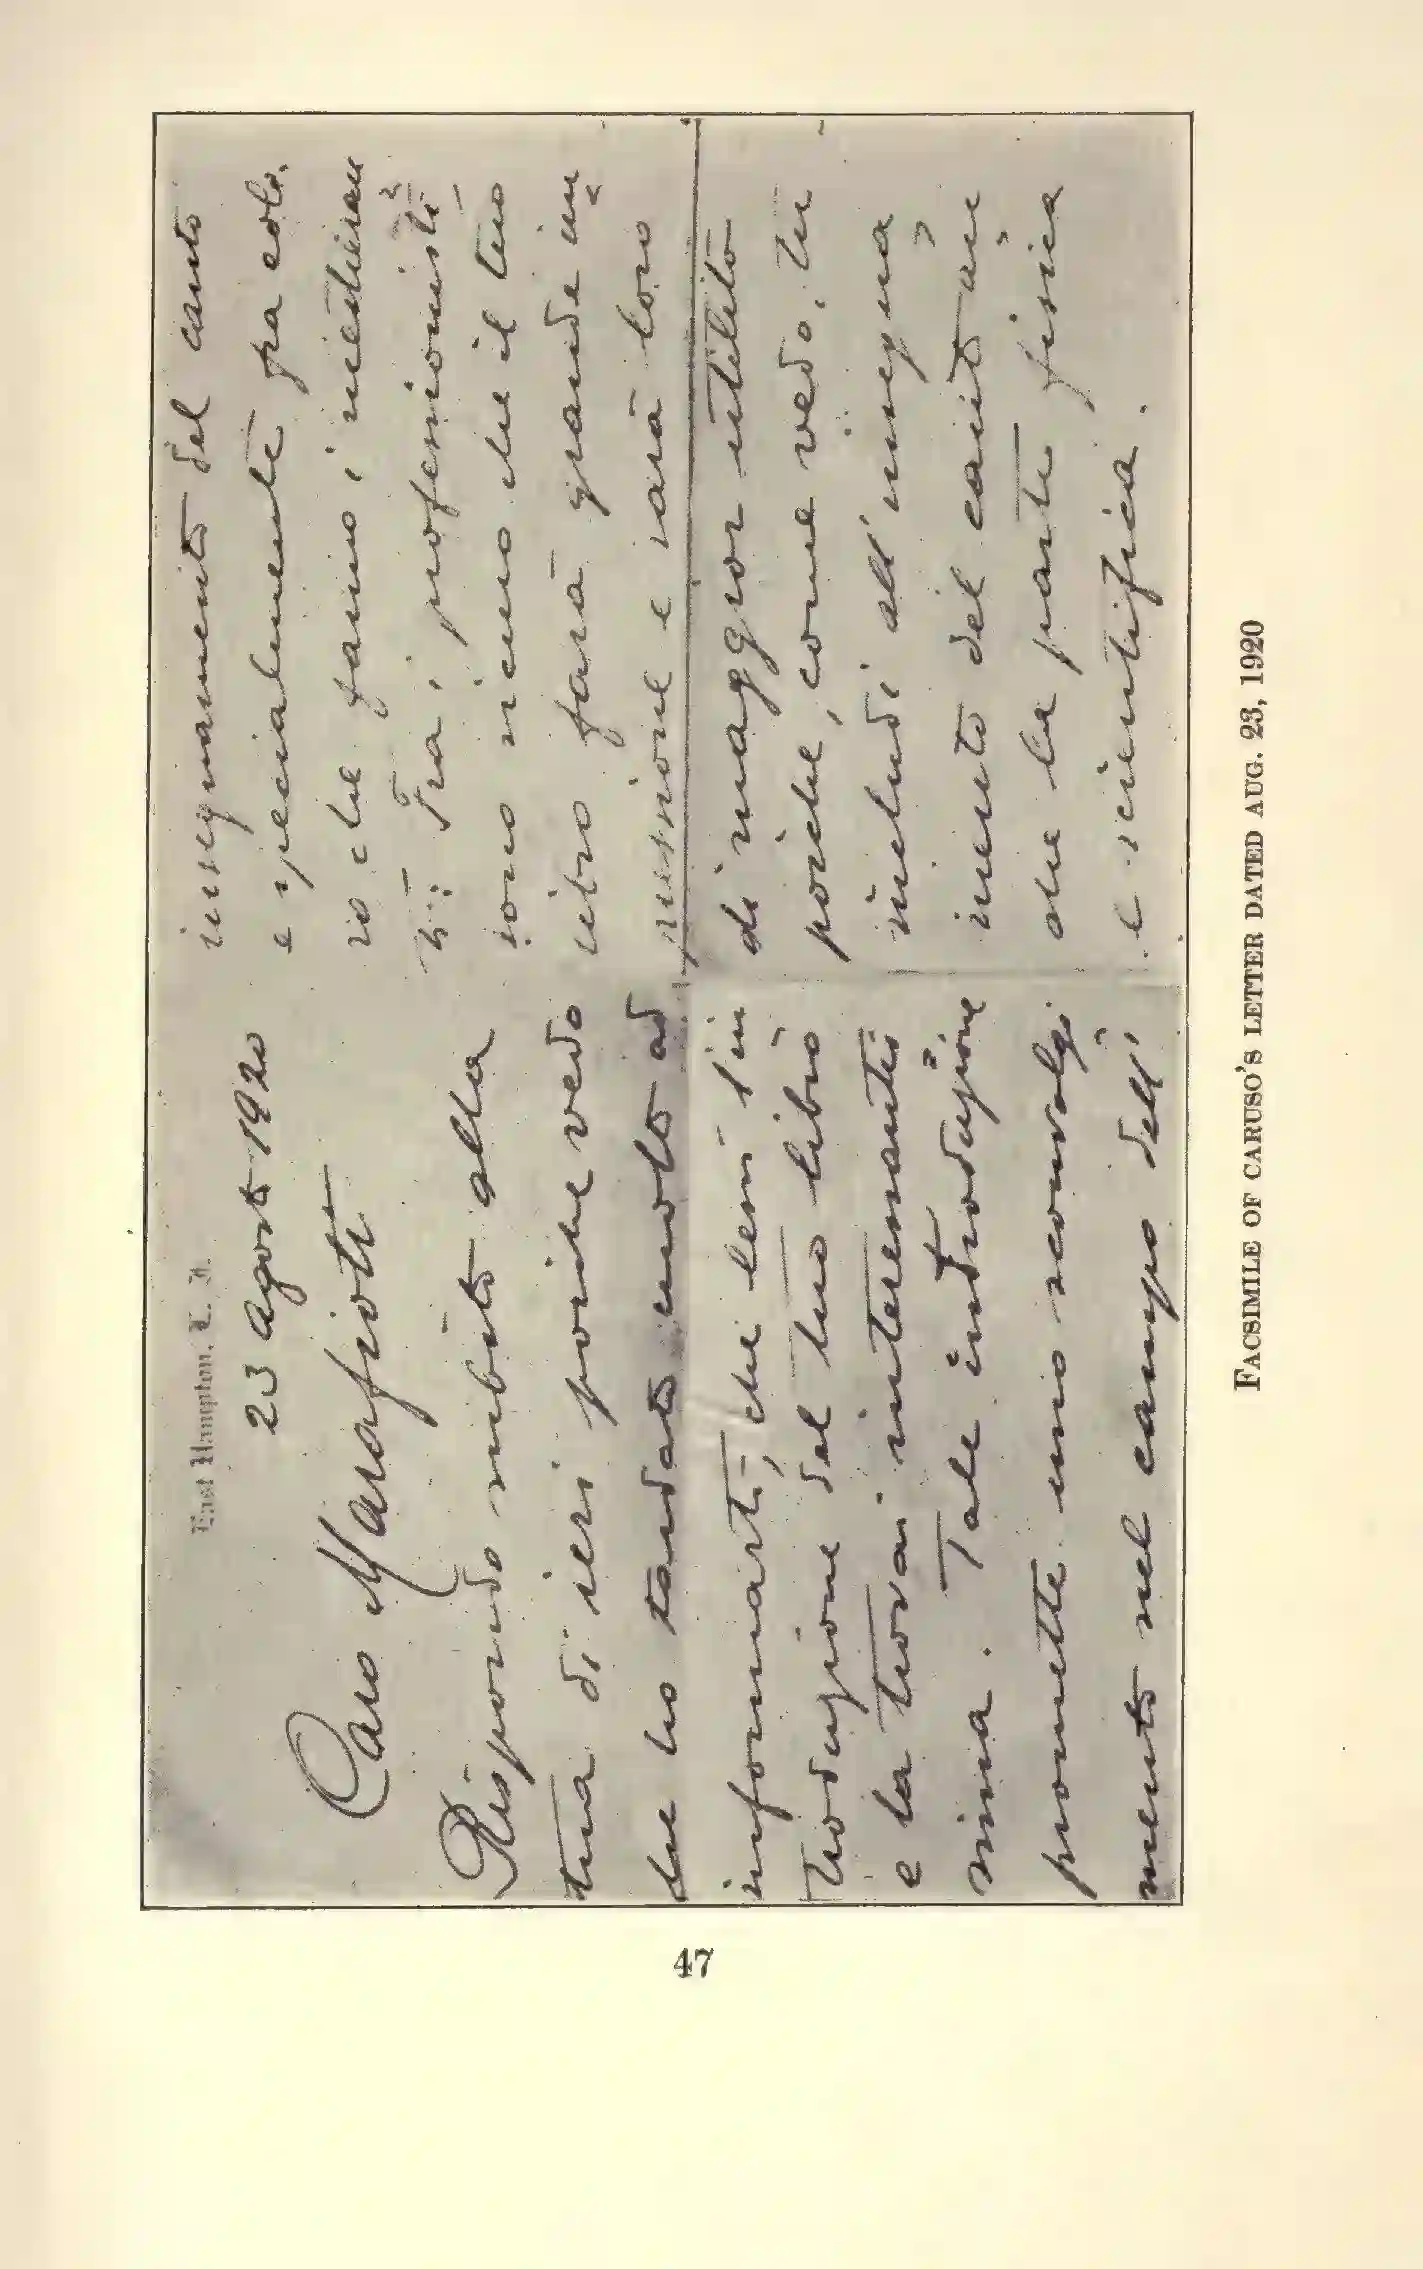 East Hampton, L. I.
23 Agosto 1920
Caro Marafioti
Rispondo subito alla
tua di ieri poiche vedo
che ho tardato molto ad
informarti, che lessi l'in
troduzione del tuo libro
e la trovai interessantis
sima. Tale introduzione
promette uno sconvolgi
mento nel campo dell'
insegnamento del canto
e specialmente fra colo.
ro che fanno i mestieran
ti. Fra i professionisti
sono sicuro che il tuo
libro farà grande im
pressione e sarà loro
di maggior utilità
poiche, come vedo, tu
includi all'insegna
mento del canto an
che la parte fisica
e scientifica.
FACSIMILE OF CARUSO'S LETTER DATED AUG. 23, 1920
47